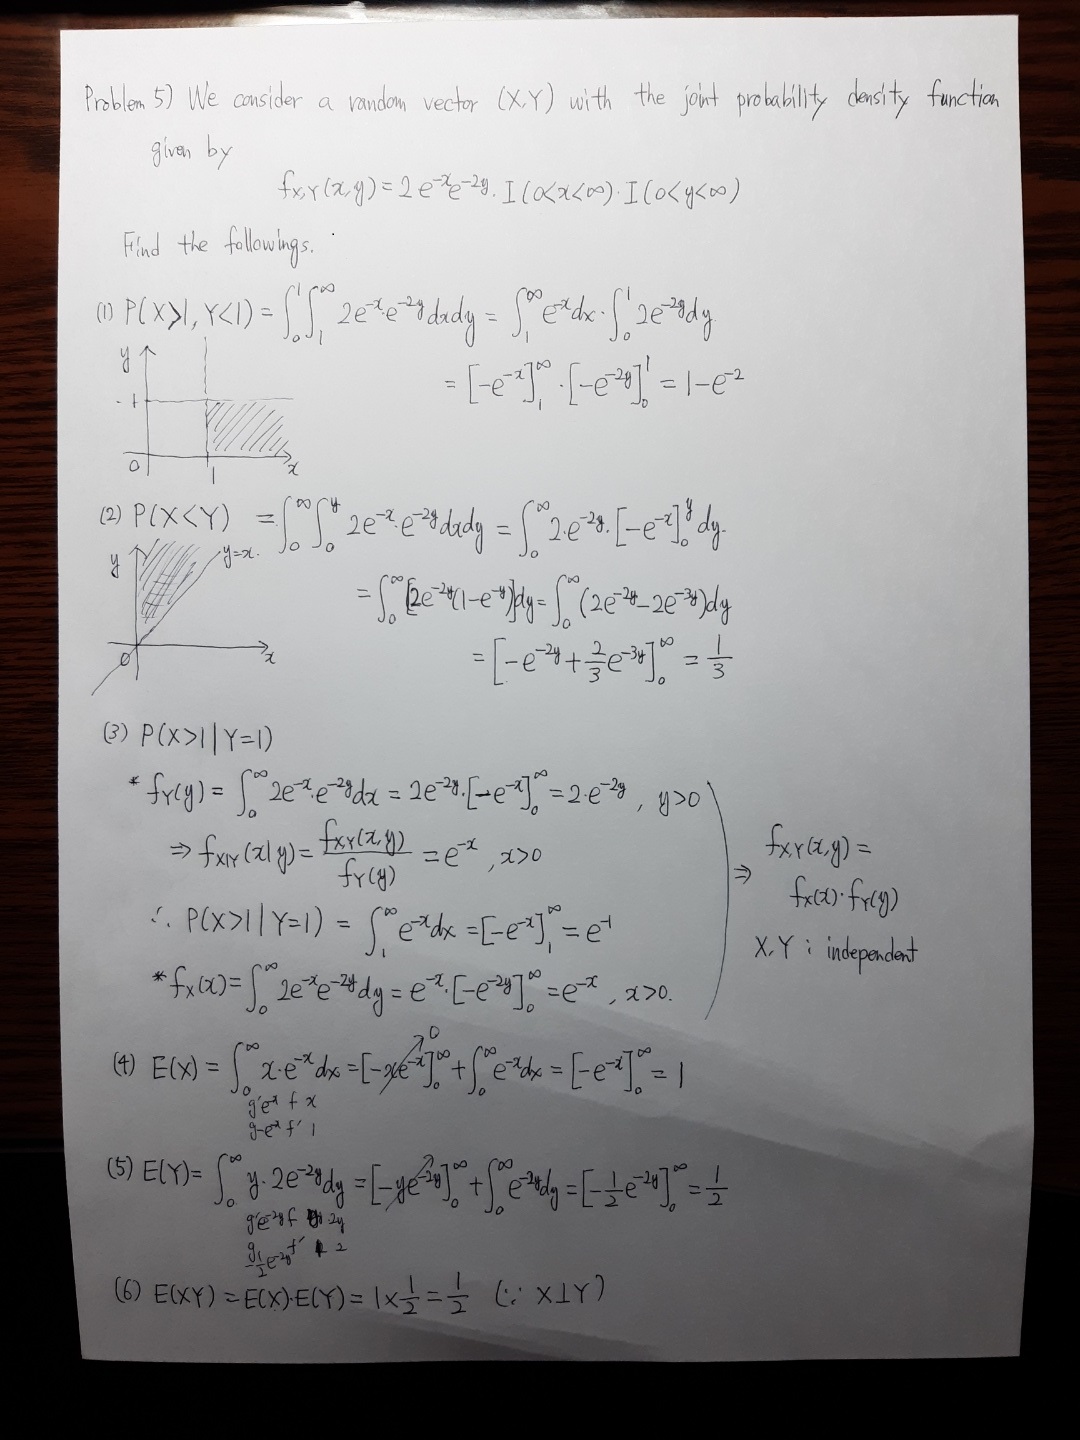 Problem 5) We consider a random vector (X,Y) with the joint probability density function
given by
f_{X,Y}(x,y) = 2e^{-x}e^{-2y}. I(0<x<∞)·I(0<y<∞)
Find the followings.
(1) P(X>1, Y<1) = ∫_0^1 ∫_1^∞ 2e^{-x}·e^{-2y}dxdy = ∫_1^∞ e^{-x}dx·∫_0^1 2e^{-2y}dy.
= [-e^{-x}]_1^∞ · [-e^{-2y}]_0^1 = 1-e^{-2}
y
1
0
1
x
(2) P(X<Y) = ∫_0^∞ ∫_0^y 2e^{-x}·e^{-2y}dxdy = ∫_0^∞ 2·e^{-2y}·[-e^{-x}]_0^y dy.
y
y=x.
= ∫_0^∞ [2e^{-2y}(1-e^{-y})]dy = ∫_0^∞ (2e^{-2y}-2e^{-3y})dy
0
x
= [-e^{-2y}+\frac{2}{3}e^{-3y}]_0^∞ = \frac{1}{3}
(3) P(X>1|Y=1)
* f_Y(y) = ∫_0^∞ 2e^{-x}·e^{-2y}dx = 2e^{-2y}·[-e^{-x}]_0^∞ = 2·e^{-2y}, y>0
⇒ f_{X|Y}(x|y) = \frac{f_{X,Y}(x,y)}{f_Y(y)} = e^{-x}, x>0
∴ P(X>1|Y=1) = ∫_1^∞ e^{-x}dx = [-e^{-x}]_1^∞ = e^{-1}
* f_X(x) = ∫_0^∞ 2e^{-x}e^{-2y}dy = e^{-x}·[-e^{-2y}]_0^∞ = e^{-x}, x>0.
⇒ f_{X,Y}(x,y) =
f_X(x)·f_Y(y)
X,Y : independent
(4) E(X) = ∫_0^∞ x·e^{-x}dx = [-xe^{-x}]_0^∞ + ∫_0^∞ e^{-x}dx = [-e^{-x}]_0^∞ = 1
0
g' e^{-x} f x
g -e^{-x} f' 1
(5) E(Y) = ∫_0^∞ y·2e^{-2y}dy = [-ye^{-2y}]_0^∞ + ∫_0^∞ e^{-2y}dy = [-\frac{1}{2}e^{-2y}]_0^∞ = \frac{1}{2}
g' e^{-2y} f 2y
g -\frac{1}{2}e^{-2y} f' 2
(6) E(XY) = E(X)·E(Y) = 1×\frac{1}{2} = \frac{1}{2} (∵ X⊥Y)